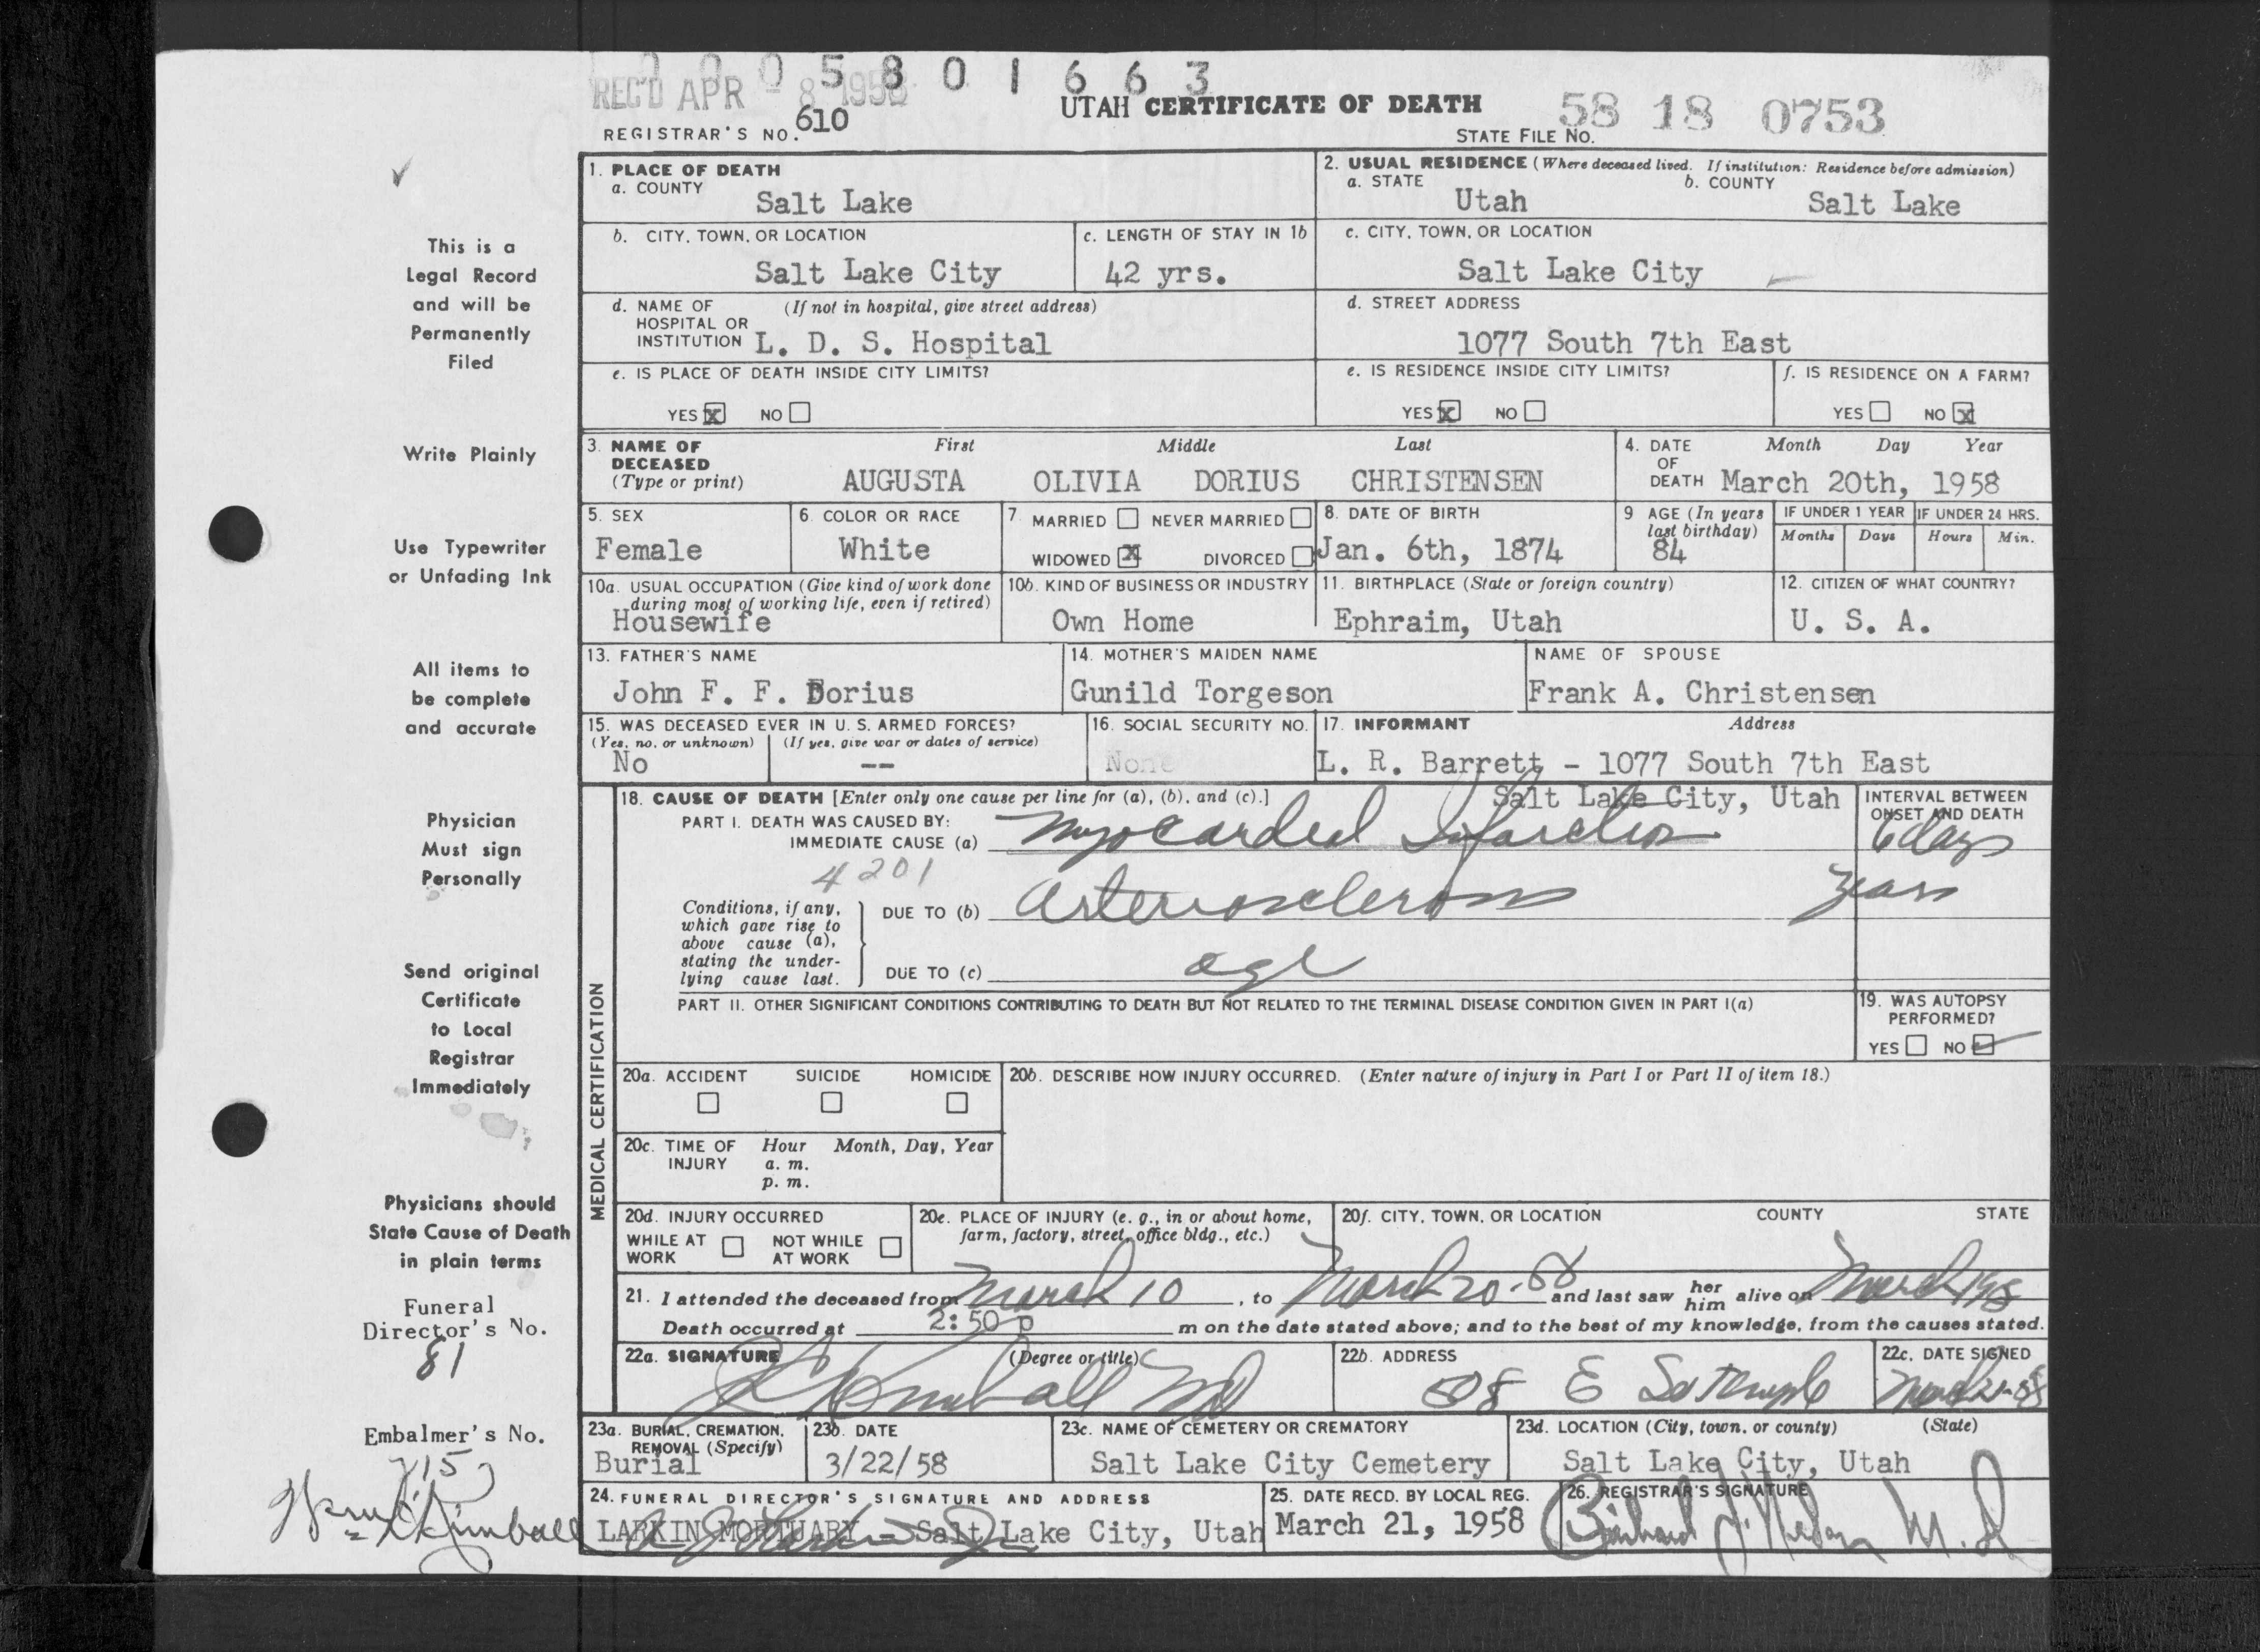 0 0 0 5 8 0 1 6 6 3
REC'D APR - 8 1958
UTAH CERTIFICATE OF DEATH
58 18 0753
REGISTRAR'S NO. 610
STATE FILE NO.
1. PLACE OF DEATH
a. COUNTY
Salt Lake
2. USUAL RESIDENCE (Where deceased lived. If institution: Residence before admission)
a. STATE
Utah
b. COUNTY
Salt Lake
b. CITY, TOWN, OR LOCATION
Salt Lake City
c. LENGTH OF STAY IN 1b
42 yrs.
c. CITY, TOWN, OR LOCATION
Salt Lake City
d. NAME OF (If not in hospital, give street address)
HOSPITAL OR
INSTITUTION L. D. S. Hospital
d. STREET ADDRESS
1077 South 7th East
e. IS PLACE OF DEATH INSIDE CITY LIMITS?
YES X NO
e. IS RESIDENCE INSIDE CITY LIMITS?
YES X NO
f. IS RESIDENCE ON A FARM?
YES NO X
3. NAME OF First Middle Last
DECEASED
(Type or print) AUGUSTA OLIVIA DORIUS CHRISTENSEN
4. DATE Month Day Year
OF
DEATH March 20th, 1958
5. SEX
Female
6. COLOR OR RACE
White
7. MARRIED NEVER MARRIED
WIDOWED X DIVORCED
8. DATE OF BIRTH
Jan. 6th, 1874
9 AGE (In years
last birthday)
84
IF UNDER 1 YEAR
Months Days
IF UNDER 24 HRS.
Hours Min.
10a. USUAL OCCUPATION (Give kind of work done
during most of working life, even if retired)
Housewife
10b. KIND OF BUSINESS OR INDUSTRY
Own Home
11. BIRTHPLACE (State or foreign country)
Ephraim, Utah
12. CITIZEN OF WHAT COUNTRY?
U. S. A.
13. FATHER'S NAME
John F. F. Dorius
14. MOTHER'S MAIDEN NAME
Gunild Torgeson
NAME OF SPOUSE
Frank A. Christensen
15. WAS DECEASED EVER IN U. S. ARMED FORCES?
(Yes, no, or unknown) (If yes, give war or dates of service)
No --
16. SOCIAL SECURITY NO.
None
17. INFORMANT Address
L. R. Barrett - 1077 South 7th East
Salt Lake City, Utah
MEDICAL CERTIFICATION
18. CAUSE OF DEATH [Enter only one cause per line for (a), (b), and (c).]
INTERVAL BETWEEN
ONSET AND DEATH
PART I. DEATH WAS CAUSED BY:
IMMEDIATE CAUSE (a) Myocardial Infarction 6 days
4201
Conditions, if any,
which gave rise to
above cause (a),
stating the under-
lying cause last.
DUE TO (b) Arteriosclerosis years
DUE TO (c) age
PART II. OTHER SIGNIFICANT CONDITIONS CONTRIBUTING TO DEATH BUT NOT RELATED TO THE TERMINAL DISEASE CONDITION GIVEN IN PART I(a)
19. WAS AUTOPSY
PERFORMED?
YES NO
20a. ACCIDENT SUICIDE HOMICIDE
20b. DESCRIBE HOW INJURY OCCURRED. (Enter nature of injury in Part I or Part II of item 18.)
20c. TIME OF Hour Month, Day, Year
INJURY a. m.
p. m.
20d. INJURY OCCURRED
WHILE AT NOT WHILE
WORK AT WORK
20e. PLACE OF INJURY (e. g., in or about home,
farm, factory, street, office bldg., etc.)
20f. CITY, TOWN, OR LOCATION COUNTY STATE
21. I attended the deceased from March 10, to March 20-58 and last saw her him alive on March 1958
Death occurred at 2:50 p m on the date stated above; and to the best of my knowledge, from the causes stated.
22a. SIGNATURE (Degree or title)
Kimball MD
22b. ADDRESS
508 E So Temple
22c. DATE SIGNED
March 21-58
23a. BURIAL, CREMATION,
REMOVAL (Specify)
Burial
23b. DATE
3/22/58
23c. NAME OF CEMETERY OR CREMATORY
Salt Lake City Cemetery
23d. LOCATION (City, town, or county) (State)
Salt Lake City, Utah
24. FUNERAL DIRECTOR'S SIGNATURE AND ADDRESS
LARKIN MORTUARY - Salt Lake City, Utah
25. DATE RECD. BY LOCAL REG.
March 21, 1958
26. REGISTRAR'S SIGNATURE
M. D.
This is a
Legal Record
and will be
Permanently
Filed
Write Plainly
Use Typewriter
or Unfading Ink
All items to
be complete
and accurate
Physician
Must sign
Personally
Send original
Certificate
to Local
Registrar
Immediately
Physicians should
State Cause of Death
in plain terms
Funeral
Director's No.
81
Embalmer's No.
715
Kimball